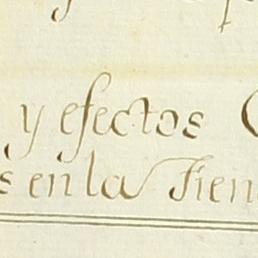 y efectos
s en la Tien